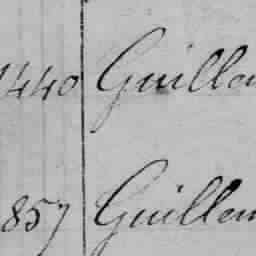 1440 Guillau
857 Guillem